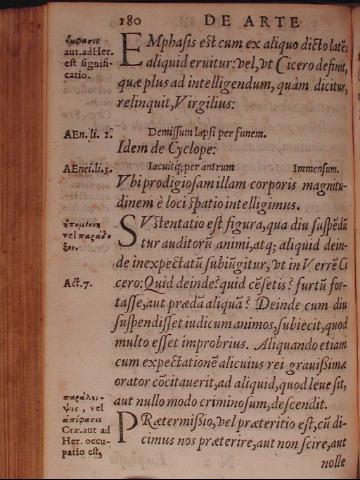 180 DE ARTE
ἔμφασις
aut.ad Her.
est signifi-
catio.
EMphasis est cum ex aliquo dicto latēs
aliquid eruitur: vel, vt Cicero definit,
quæ plus ad intelligendum, quàm dicitur,
relinquit, Virgilius:
AEn. li. 2. Demissum lapsi per funem.
Idem de Cyclope:
AEnei.li.3. Iacuitq; per antrum Immensum.
Vbi prodigiosam illam corporis magnitu-
dinem è loci spatio intelligimus.
ὑπομονὴ
vel παράδο
ξον.
SVstentatio est figura, qua diu suspēdū
tur auditorū animi, atq; aliquid dein-
de inexpectatū subiūgitur, vt in Verrē Ci
Act.7. cero: Quid deinde? quid cēsetis? furtū for-
tasse, aut prædā aliquā? Deinde cum diu
suspendisset iudicum animos, subiecit, quod
multo esset improbrius. Aliquando etiam
cum expectationē alicuius rei grauissimæ
orator cōcitauerit, ad aliquid, quod leue sit,
aut nullo modo criminosum, descendit.
παράλει-
ψις, vel
ἀπόφασις
Cræ.aut ad
Her. occu-
patio est,
PRætermissio, vel præteritio est, cū di-
cimus nos præterire, aut non scire, aut
nolle